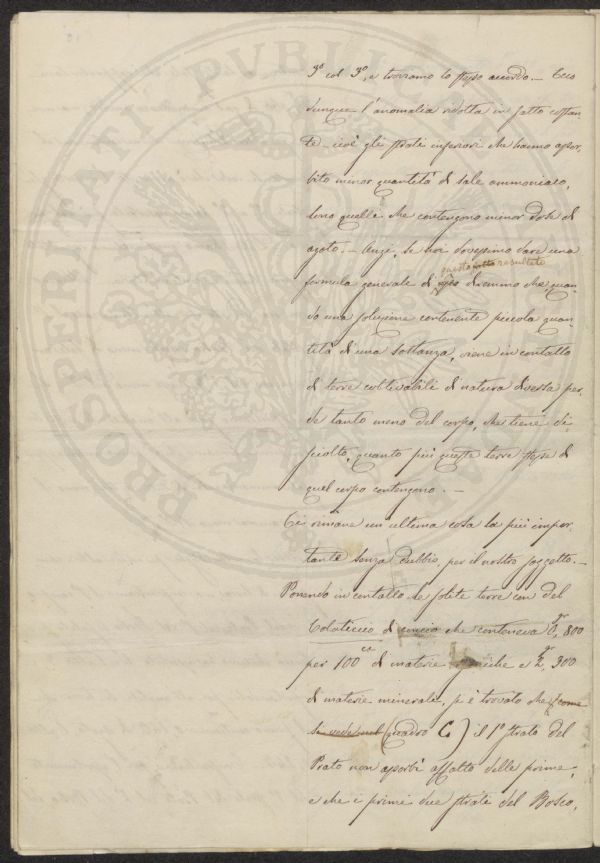 3º col 3º, e troviamo lo stesso accordo. - Ecco
dunque l'anomalia ridotta in fatto costan-
te - cioè gli strati inferiori che hanno assor-
bito minor quantità di sale ammoniaco,
sono quelli che contengono minor dose di
azoto. - Anzi, se noi dovessimo dare una
questo resultato
formula generale di diremmo che quan-
do una soluzione contenente piccola quan-
tità di una sostanza, viene in contatto
di terre coltivabili di natura diversa per-
de tanto meno del corpo, che tiene di-
sciolto, quanto più queste terre stesse di
quel corpo contengono. -
Ci rimane un ultima cosa la più impor-
tante senza dubbio, per il nostro soggetto. -
Ponendo in contatto le solite terre con del
Colaticcio di concio che conteneva 0,gr 800
per 100cc di materie organiche e 2,gr 300
di materie minerali, si è trovato che (come
si vede nel (Quadro C) il 1º strato del
Prato non assorbì affatto delle prime,
e che i primi due strati del Bosco,
PROSPERITATI PVBLICAE